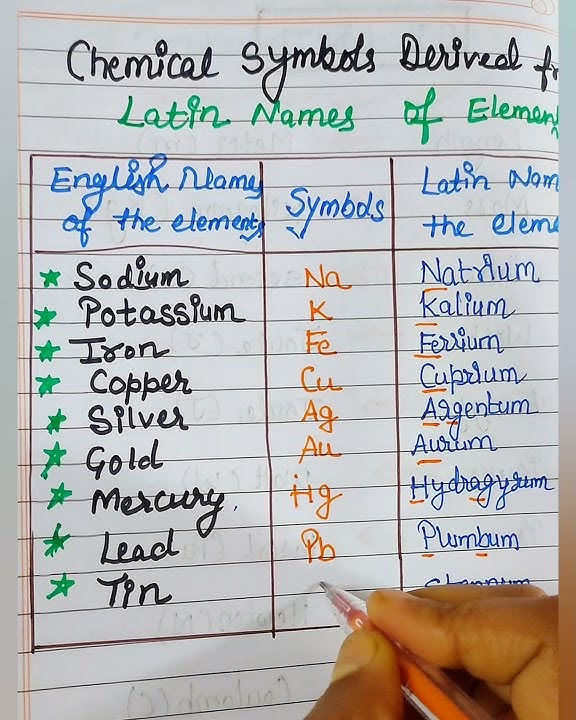 Chemical Symbols Derived
Latin Names of Element
English Name Symbols Latin Nam
of the elements the eleme
Sodium Na Natrium
Potassium K Kalium
Iron Fe Ferrium
Copper Cu Cuprium
Silver Ag Argentum
Gold Au Aurum
Mercury. Hg Hydragyrum
Lead Pb Plumbum
Tin